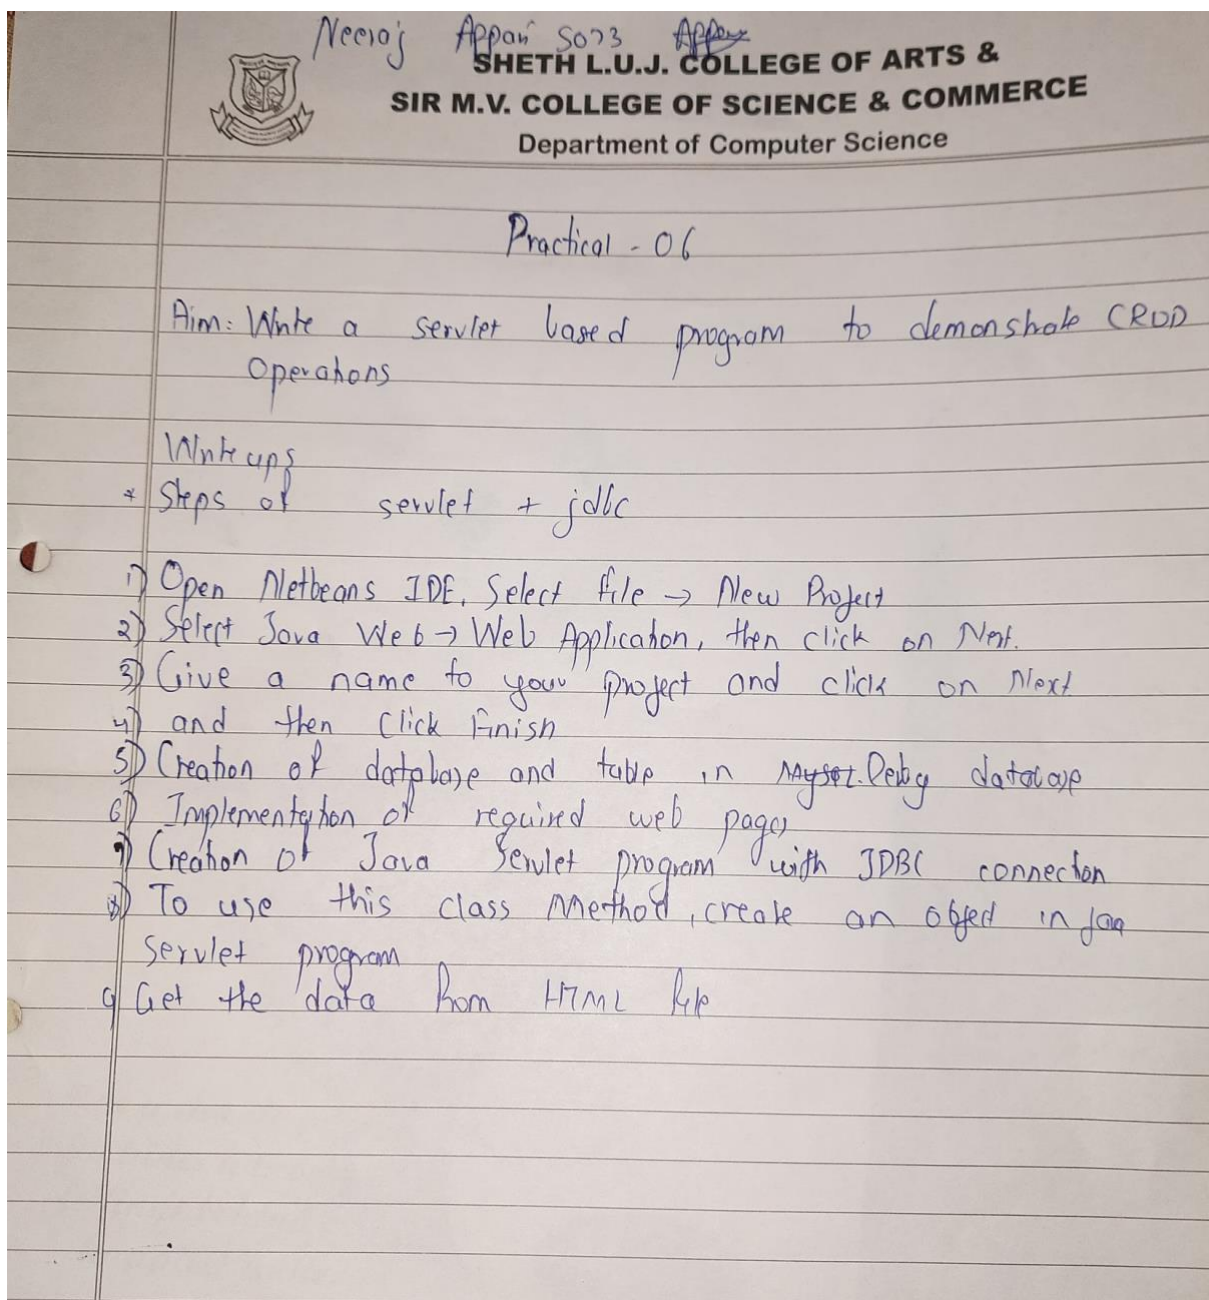 Neeraj Appari S073
SHETH L.U.J. COLLEGE OF ARTS &
SIR M.V. COLLEGE OF SCIENCE & COMMERCE
Department of Computer Science
Practical - 06
Aim: Write a servlet based program to demonstrate CRUD
Operations
Write ups
* Steps of servlet + jdbc
1) Open Netbeans IDE, Select file → New Project
2) Select Java Web → Web Application, then click on Next.
3) Give a name to your project and click on Next
4) and then click Finish
5) Creation of database and table in Derby database
6) Implementation of required web pages
7) Creation of Java Servlet program with JDBC connection
8) To use this class Method, create an object in
servlet program
9 Get the data from HTML file